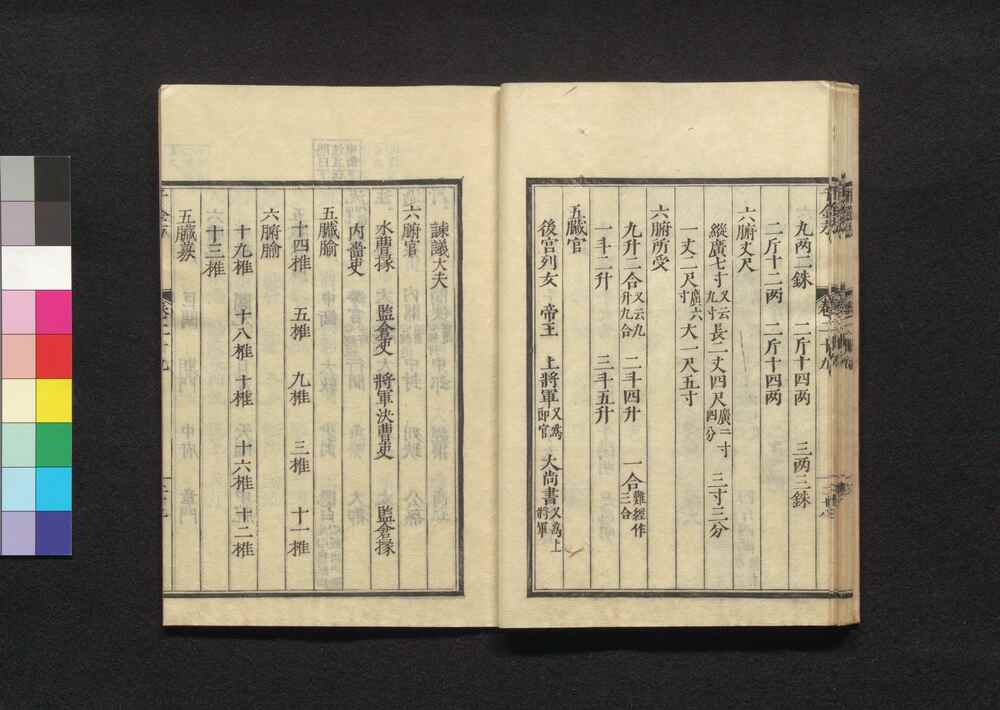 九两二銖　二斤十四两　三两三銖
二斤十二两　二斤十四两
六腑丈尺
縱廣七寸又云九寸長二丈四尺廣二寸四分　三寸三分
一丈二尺廣六寸大一尺五寸
六腑所受
九升二合又云九升九合　二斗四升　一合難經作三合
一斗二升　三斗五升
五臟官
後宮列女　帝王　上將軍又爲郎官　大尚書又爲上將軍
諫議大夫
六腑官
水曹掾　監倉吏　將軍決曹吏　監倉掾
内嗇吏
五臟腧
十四椎　五椎　九椎　三椎　十一椎
六腑腧
十九椎　十八椎　十椎　十六椎　十二椎
十三椎
五臟募